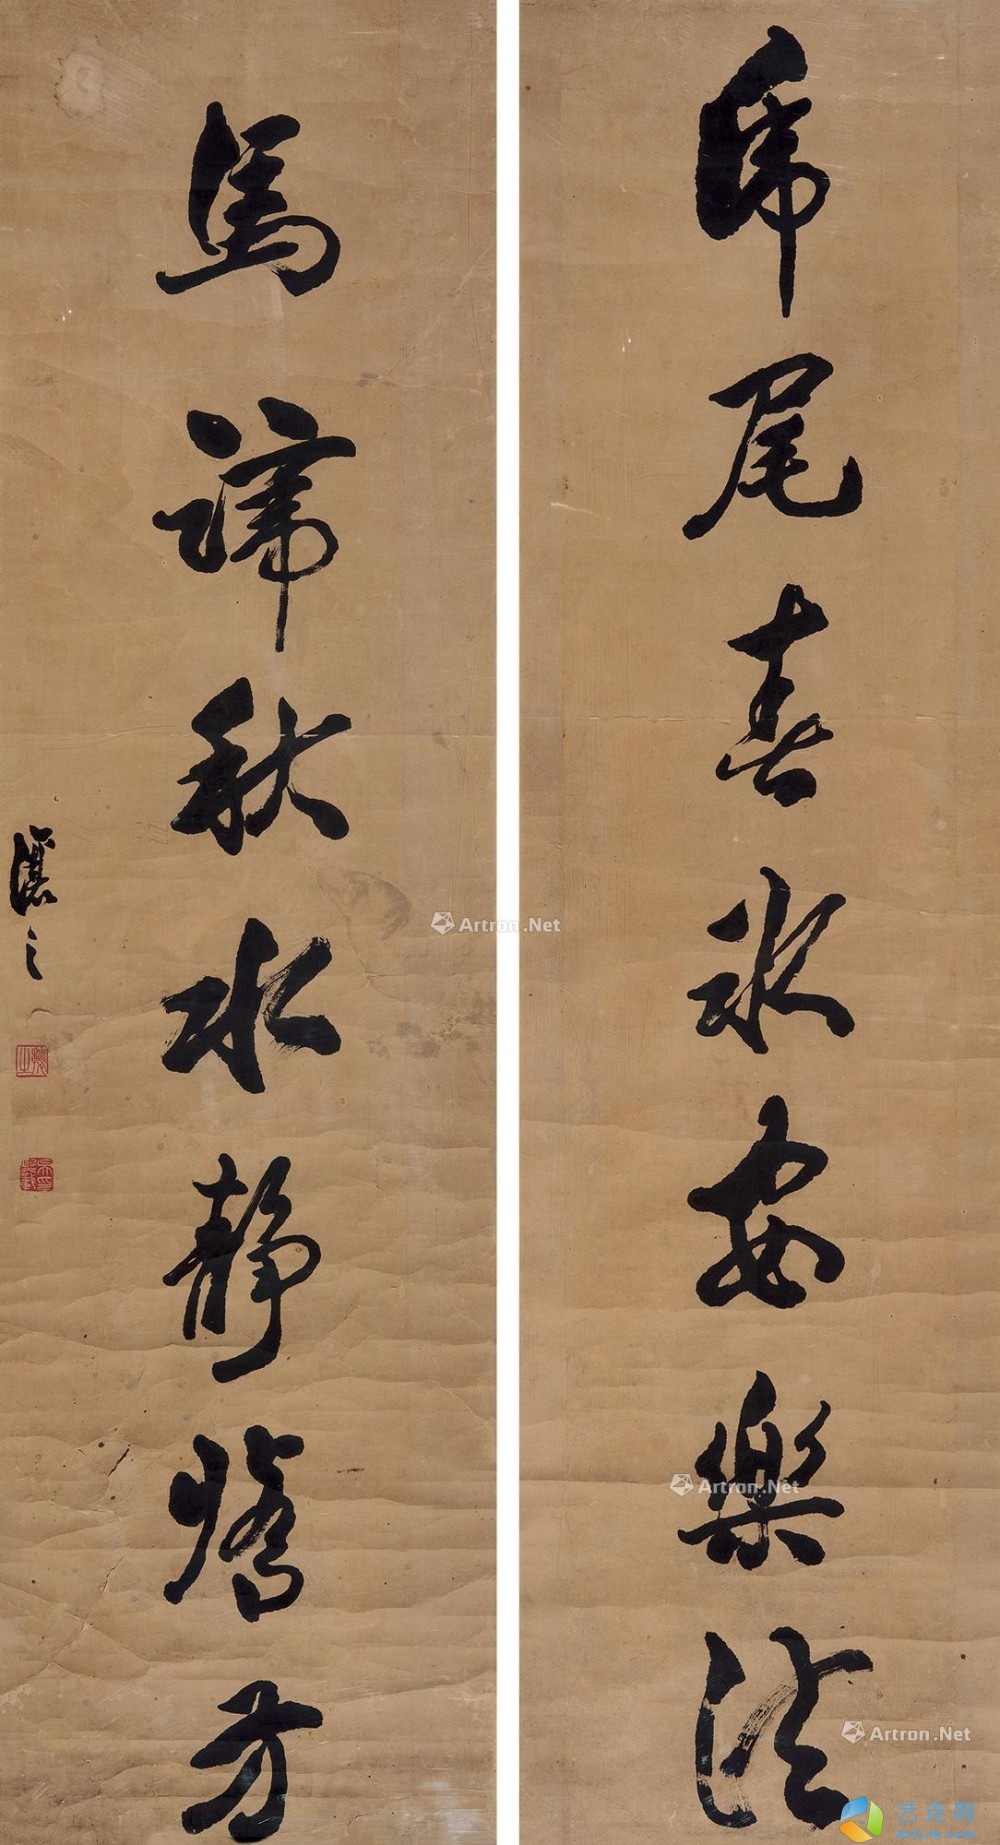 虎尾春冰安樂法
馬蹄秋水靜脩方
讓之
Artron.Net
Artron.Net
Artron.Net
艺连网